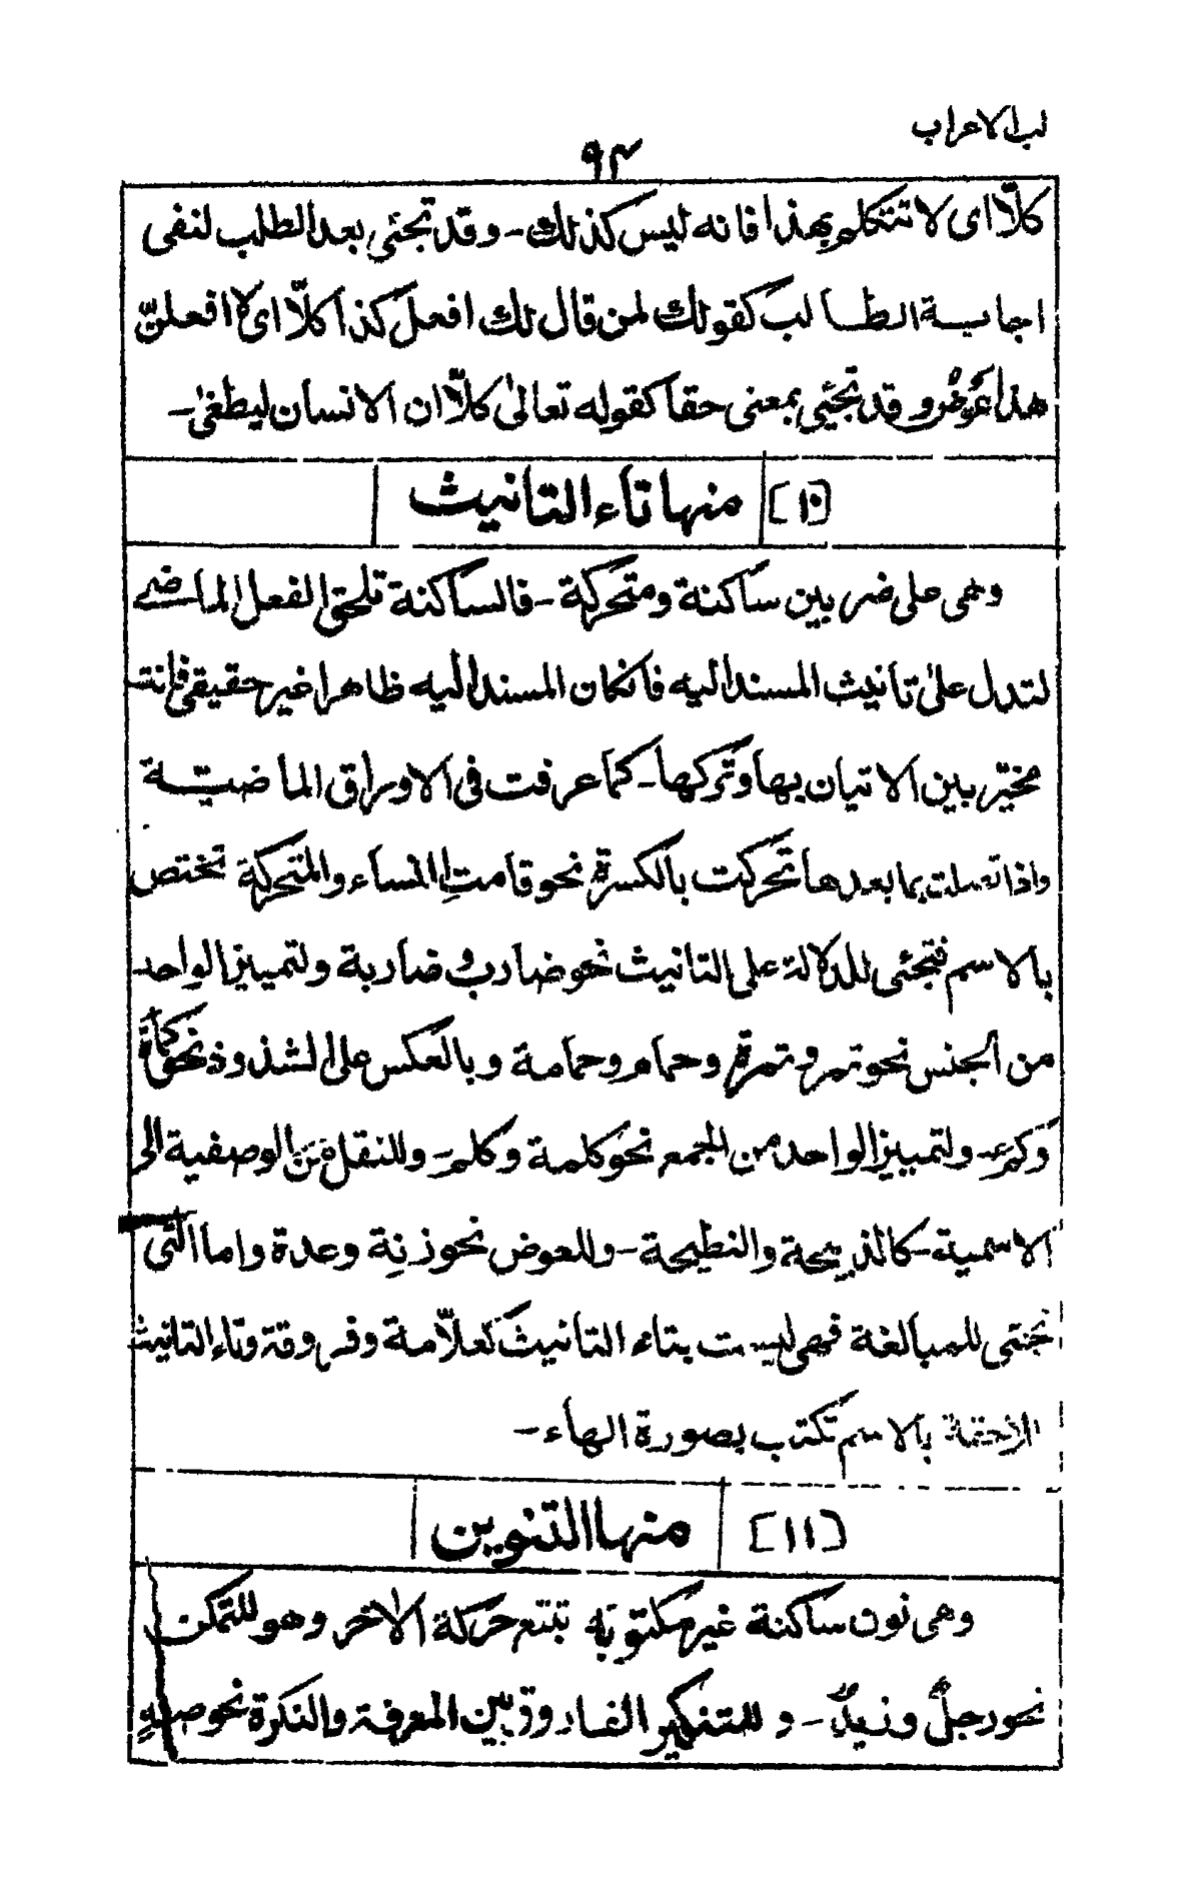 لب الاعراب
٩٤
كلّا اى لا تتكلم بهذا فانه ليس كذلك - وقد تجئى بعد الطلب لنفى
اجابة الطالب كقولك لمن قال لك افعل كذا كلّا اى لا افعلنّ
هذا وقد تجئى بمعنى حقا كقوله تعالىٰ كلّا ان الانسان ليطغىٰ -
[١٠] منها تاء التانيث
وهى على ضربين ساكنة ومتحركة - فالساكنة تلحق الفعل الماضى
لتدل علىٰ تانيث المسند اليه فانكان المسند اليه ظاهرا غير حقيقى فانت
مخيّر بين الاتيان بها وتركها - كما عرفت فى الاوراق الماضيّة
واذا بما بعدها تحركت بالكسرة نحو قامتِ النساء والمتحركة تختص
بالاسم فتجئى للدلالة على التانيث نحو ضارب وضاربة ولتمييز الواحد
من الجنس نحو تمر وتمرة وحمام وحمامة وبالعكس على الشذوذ نحو كمأة
وكمء - ولتمييز الواحد من الجمع نحو كلمة وكلم - وللنقل من الوصفية الى
الاسمية - كالذبيحة والنطيحة - وللعوض نحو زنِة وعدة واما التى
تجئى للمبالغة فهى ليست بتاء التانيث كعلّامة وفروقة وتاء التانيث
اللاحقة بالاسم تكتب بصورة الهاء -
[١١] منها التنوين
وهى نون ساكنة غير مكتوبة تتبع حركة الاخر وهو للتمكن
نحو رجلٌ وزيدٌ - و للتنكير الفارق بين المعرفة والنكرة نحو صهٍ